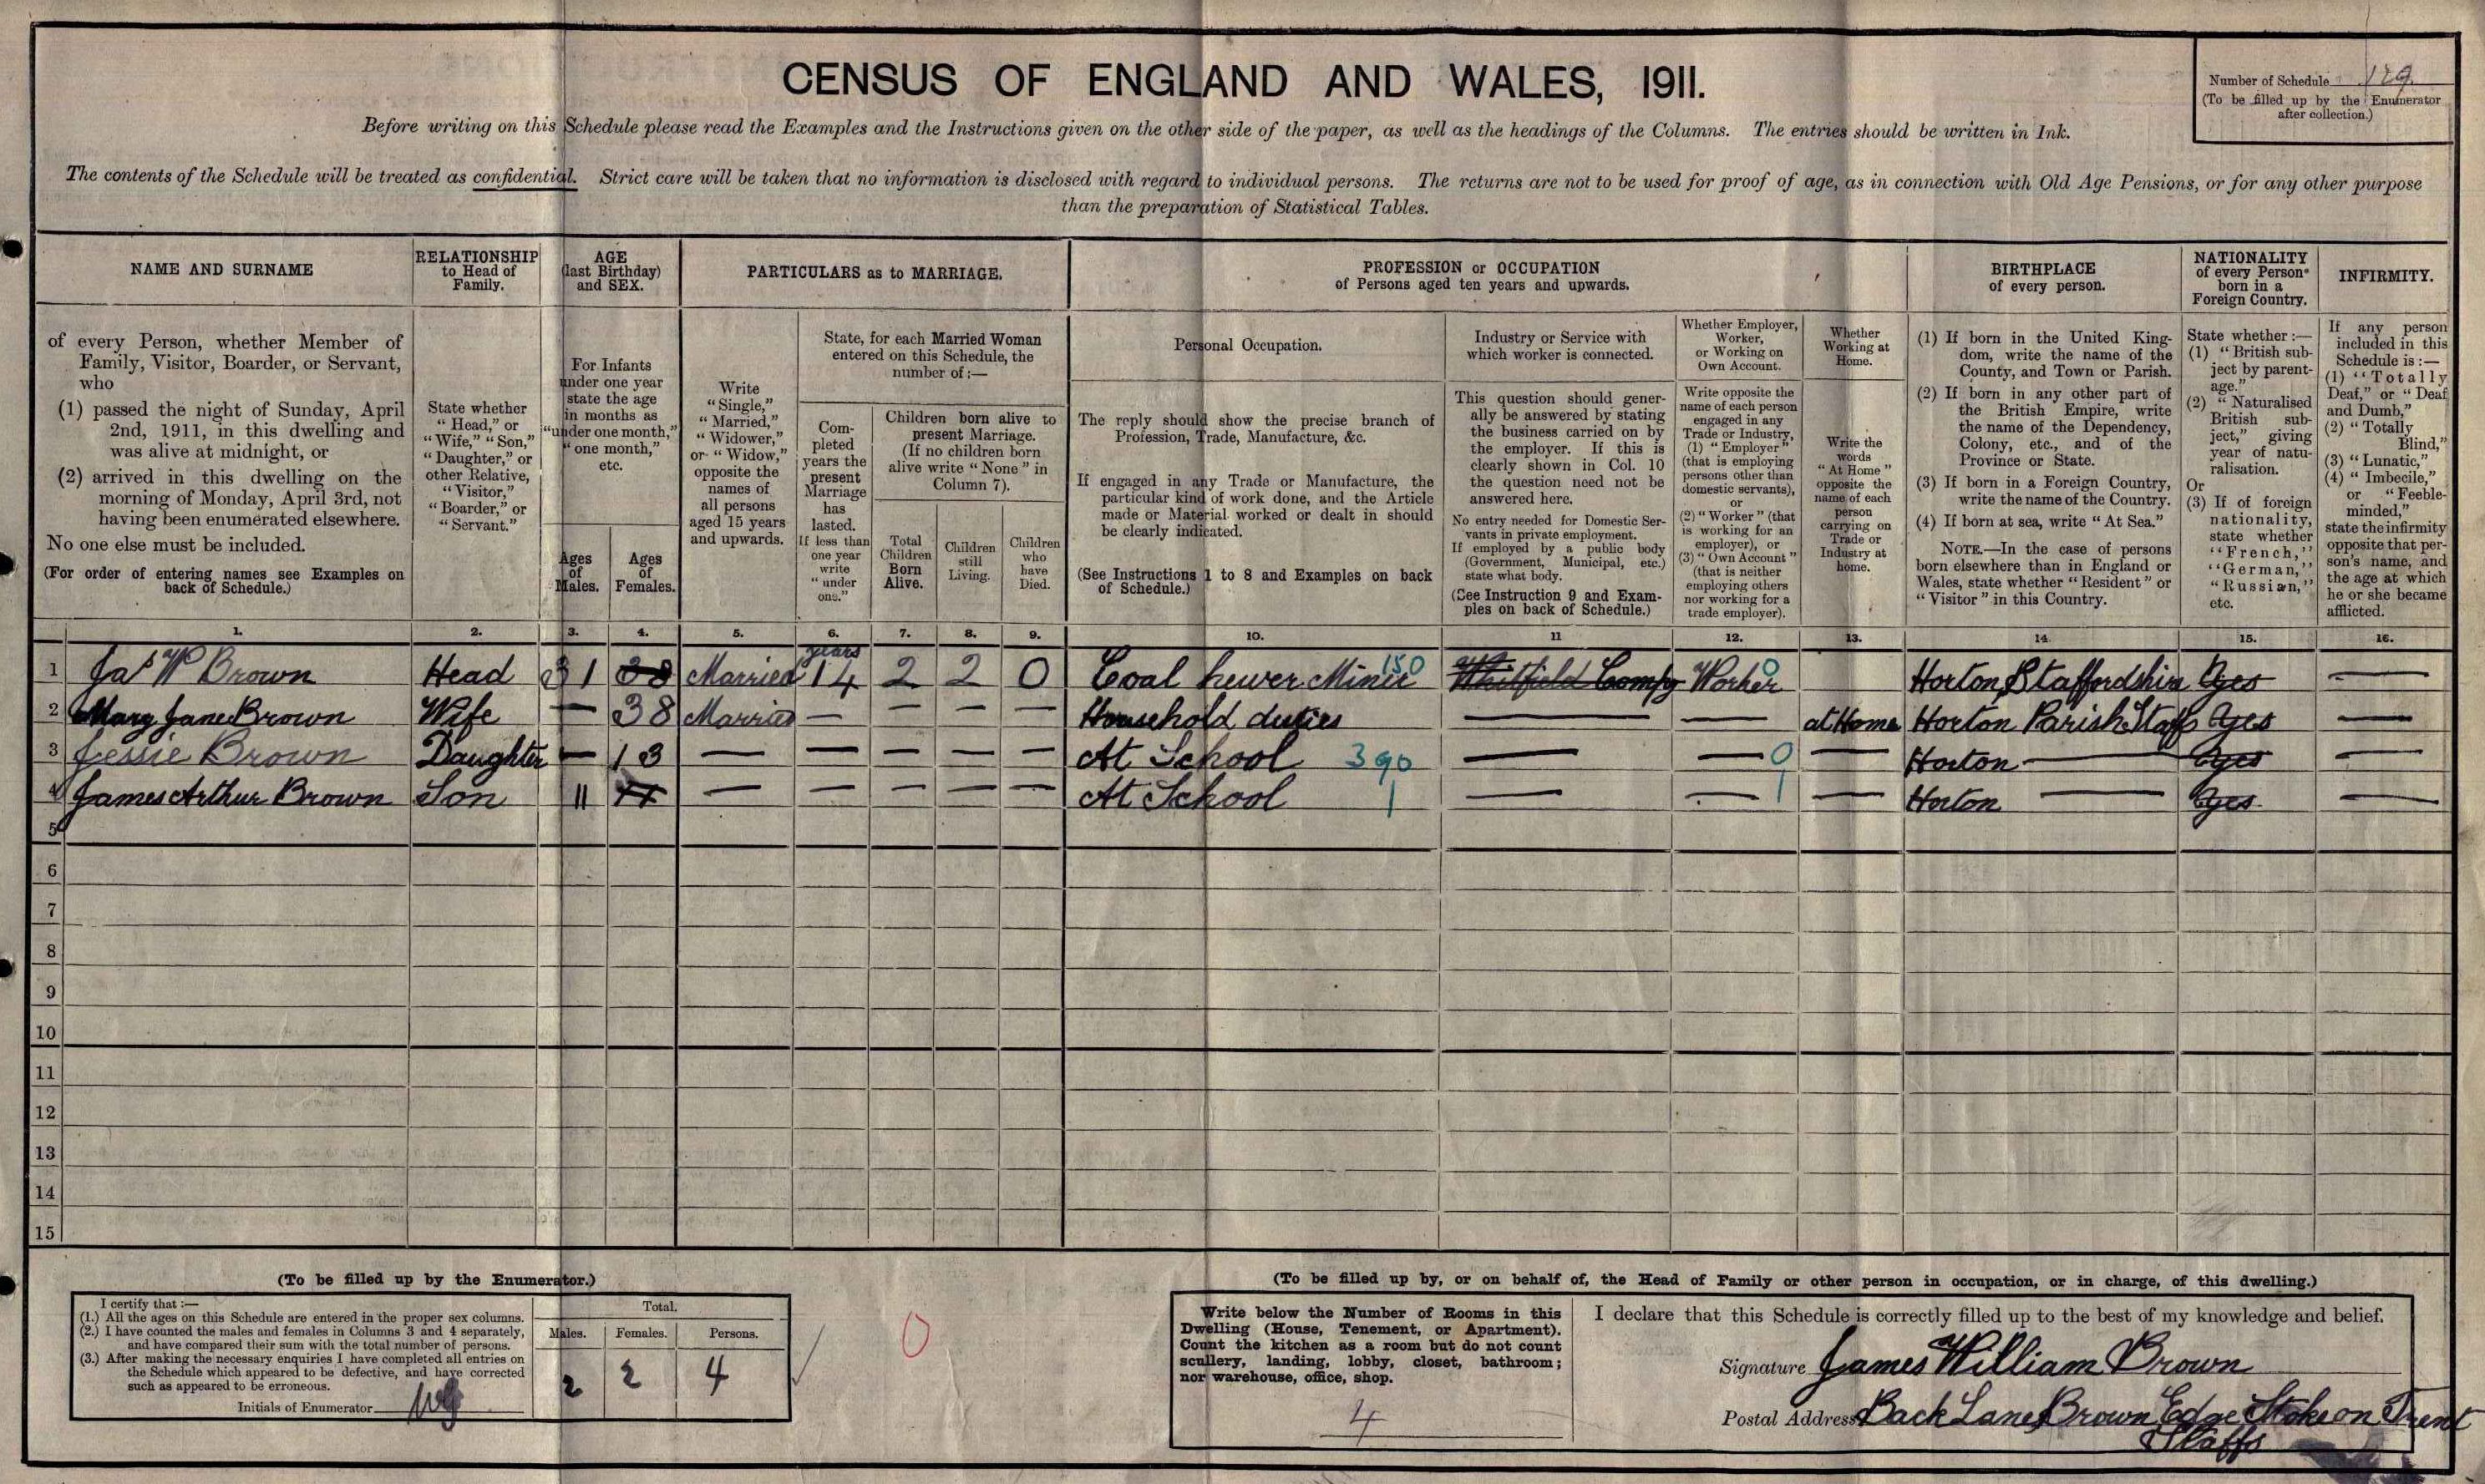 CENSUS OF ENGLAND AND WALES, 1911.
Number of Schedule 129.
(To be filled up by the Enumerator
after collection.)
Before writing on this Schedule please read the Examples and the Instructions given on the other side of the paper, as well as the headings of the Columns. The entries should be written in Ink.
The contents of the Schedule will be treated as confidential. Strict care will be taken that no information is disclosed with regard to individual persons. The returns are not to be used for proof of age, as in connection with Old Age Pensions, or for any other purpose
than the preparation of Statistical Tables.
NAME AND SURNAME
of every Person, whether Member of
Family, Visitor, Boarder, or Servant,
who
(1) passed the night of Sunday, April
2nd, 1911, in this dwelling and
was alive at midnight, or
(2) arrived in this dwelling on the
morning of Monday, April 3rd, not
having been enumerated elsewhere.
No one else must be included.
(For order of entering names see Examples on
back of Schedule.)
RELATIONSHIP
to Head of
Family.
State whether
"Head," or
"Wife," "Son,"
"Daughter," or
other Relative,
"Visitor,"
"Boarder," or
"Servant."
AGE
(last Birthday)
and SEX.
For Infants
under one year
state the age
in months as
"under one month,"
"one month,"
etc.
Ages
of
Males.
Ages
of
Females.
PARTICULARS as to MARRIAGE.
Write
"Single,"
"Married,"
"Widower,"
or "Widow,"
opposite the
names of
all persons
aged 15 years
and upwards.
State, for each Married Woman
entered on this Schedule, the
number of :—
Com-
pleted
years the
present
Marriage
has
lasted.
If less than
one year
write
"under
one."
Children born alive to
present Marriage.
(If no children born
alive write "None" in
Column 7).
Total
Children
Born
Alive.
Children
still
Living.
Children
who
have
Died.
PROFESSION or OCCUPATION
of Persons aged ten years and upwards.
Personal Occupation.
The reply should show the precise branch of
Profession, Trade, Manufacture, &c.
If engaged in any Trade or Manufacture, the
particular kind of work done, and the Article
made or Material worked or dealt in should
be clearly indicated.
(See Instructions 1 to 8 and Examples on back
of Schedule.)
Industry or Service with
which worker is connected.
This question should gener-
ally be answered by stating
the business carried on by
the employer. If this is
clearly shown in Col. 10
the question need not be
answered here.
No entry needed for Domestic Ser-
vants in private employment.
If employed by a public body
(Government, Municipal, etc.)
state what body.
(See Instruction 9 and Exam-
ples on back of Schedule.)
Whether Employer,
Worker,
or Working on
Own Account.
Write opposite the
name of each person
engaged in any
Trade or Industry,
(1) "Employer"
(that is employing
persons other than
domestic servants),
or
(2) "Worker" (that
is working for an
employer), or
(3) "Own Account"
(that is neither
employing others
nor working for a
trade employer).
Whether
Working at
Home.
Write the
words
"At Home"
opposite the
name of each
person
carrying on
Trade or
Industry at
home.
BIRTHPLACE
of every person.
(1) If born in the United King-
dom, write the name of the
County, and Town or Parish.
(2) If born in any other part of
the British Empire, write
the name of the Dependency,
Colony, etc., and of the
Province or State.
(3) If born in a Foreign Country,
write the name of the Country.
(4) If born at sea, write "At Sea."
NOTE.—In the case of persons
born elsewhere than in England or
Wales, state whether "Resident" or
"Visitor" in this Country.
NATIONALITY
of every Person
born in a
Foreign Country.
State whether :—
(1) "British sub-
ject by parent-
age."
(2) "Naturalised
British sub-
ject," giving
year of natu-
ralisation.
Or
(3) If of foreign
nationality,
state whether
"French,"
"German,"
"Russian,"
etc.
INFIRMITY.
If any person
included in this
Schedule is :—
(1) "Totally
Deaf," or "Deaf
and Dumb,"
(2) "Totally
Blind,"
(3) "Lunatic,"
(4) "Imbecile,"
or "Feeble-
minded,"
state the infirmity
opposite that per-
son's name, and
the age at which
he or she became
afflicted.
1. 2. 3. 4. 5. 6. 7. 8. 9. 10. 11 12. 13. 14. 15. 16.
years
1 Jas W Brown Head 31 38 Married 14 2 2 0 Coal hewer Miner 150 Whitfield Compy Worker 0 Horton Staffordshire Yes —
2 Mary Jane Brown Wife — 38 Married — — — — Household duties — — at Home Horton Parish Staffs Yes —
3 Jessie Brown Daughter — 13 — — — — — At School 390 — — 0 — Horton — Yes —
4 James Arthur Brown Son 11 11 — — — — — At School 1 — — 1 — Horton — Yes —
5
6
7
8
9
10
11
12
13
14
15
(To be filled up by the Enumerator.)
I certify that :—
(1.) All the ages on this Schedule are entered in the proper sex columns.
(2.) I have counted the males and females in Columns 3 and 4 separately,
and have compared their sum with the total number of persons.
(3.) After making the necessary enquiries I have completed all entries on
the Schedule which appeared to be defective, and have corrected
such as appeared to be erroneous.
Initials of Enumerator
Total.
Males. Females. Persons.
2 2 4
0
(To be filled up by, or on behalf of, the Head of Family or other person in occupation, or in charge, of this dwelling.)
Write below the Number of Rooms in this
Dwelling (House, Tenement, or Apartment).
Count the kitchen as a room but do not count
scullery, landing, lobby, closet, bathroom;
nor warehouse, office, shop.
4
I declare that this Schedule is correctly filled up to the best of my knowledge and belief.
Signature James William Brown
Postal Address Back Lane, Brown Edge Stoke on Trent
Staffs